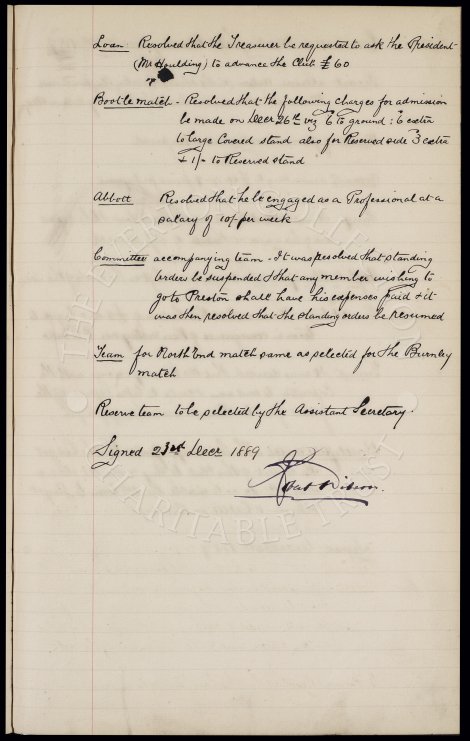 Loan: Resolved that the Treasurer be requested to ask the President
(Mr Houlding) to advance the Club £60
Bootle match - Resolved that the following charges for admission
be made on Decr 26th viz 6 to ground: 6 extra
to large Covered stand also for Reserved side 3 extra
& 1/- to Reserved stand
Abbott Resolved that he be engaged as a Professional at a
salary of 10/- per week
Committee accompanying team - It was resolved that standing
orders be suspended & that any member wishing to
go to Preston shall have his expenses paid & it
was then resolved that the standing orders be resumed
Team for North End match same as selected for the Burnley
match
Reserve team to be selected by the Assistant Secretary.
Signed 23rd Decr 1889
THE EVERTON COLLECTION
CHARITABLE TRUST